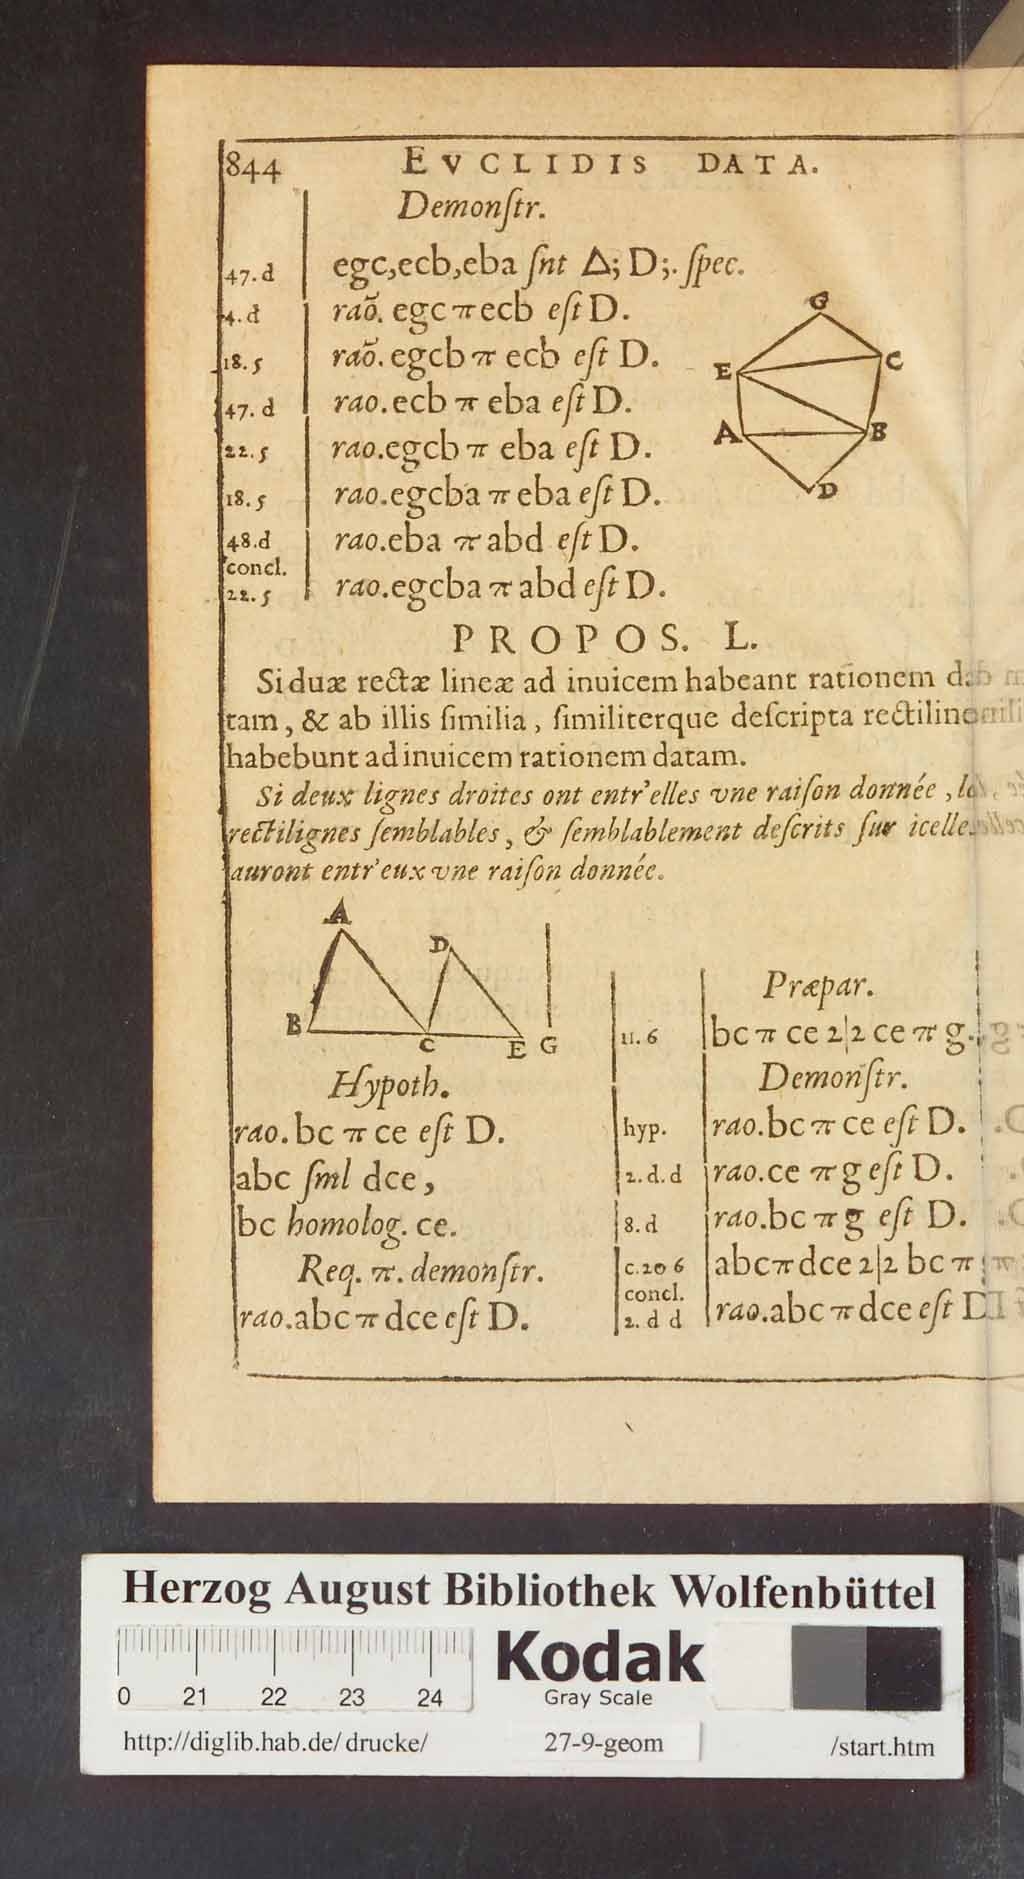 844 EVCLIDIS DATA.
Demonſtr.
47.d egc,ecb,eba ſnt Δ; D;. ſpec.
4.d raõ. egc π ecb eſt D.
18.5 raõ. egcb π ecb eſt D.
47.d rao. ecb π eba eſt D.
22.5 rao. egcb π eba eſt D.
18.5 rao. egcba π eba eſt D.
48.d rao. eba π abd eſt D.
concl.
22.5 rao. egcba π abd eſt D.
G
E C
A B
D
PROPOS. L.
Si duæ rectæ lineæ ad inuicem habeant rationem
tam, & ab illis ſimilia, ſimiliterque deſcripta
habebunt ad inuicem rationem datam.
Si deux lignes droites ont entr'elles vne raiſon donnée,
rectilignes ſemblables, & ſemblablement deſcrits ſur
auront entr'eux vne raiſon donnée.
A
D
B C E G
Hypoth.
rao. bc π ce eſt D.
abc ſml dce,
bc homolog. ce.
Req. π. demonſtr.
rao. abc π dce eſt D.
Præpar.
11.6 bc π ce 2|2 ce π g.
Demonſtr.
hyp. rao. bc π ce eſt D.
2.d.d rao. ce π g eſt D.
8.d rao. bc π g eſt D.
c.20 6 abc π dce 2|2 bc π
concl.
2. d d rao. abc π dce eſt D
Herzog August Bibliothek Wolfenbüttel
0 21 22 23 24
Kodak
Gray Scale
http://diglib.hab.de/drucke/ 27-9-geom /start.htm